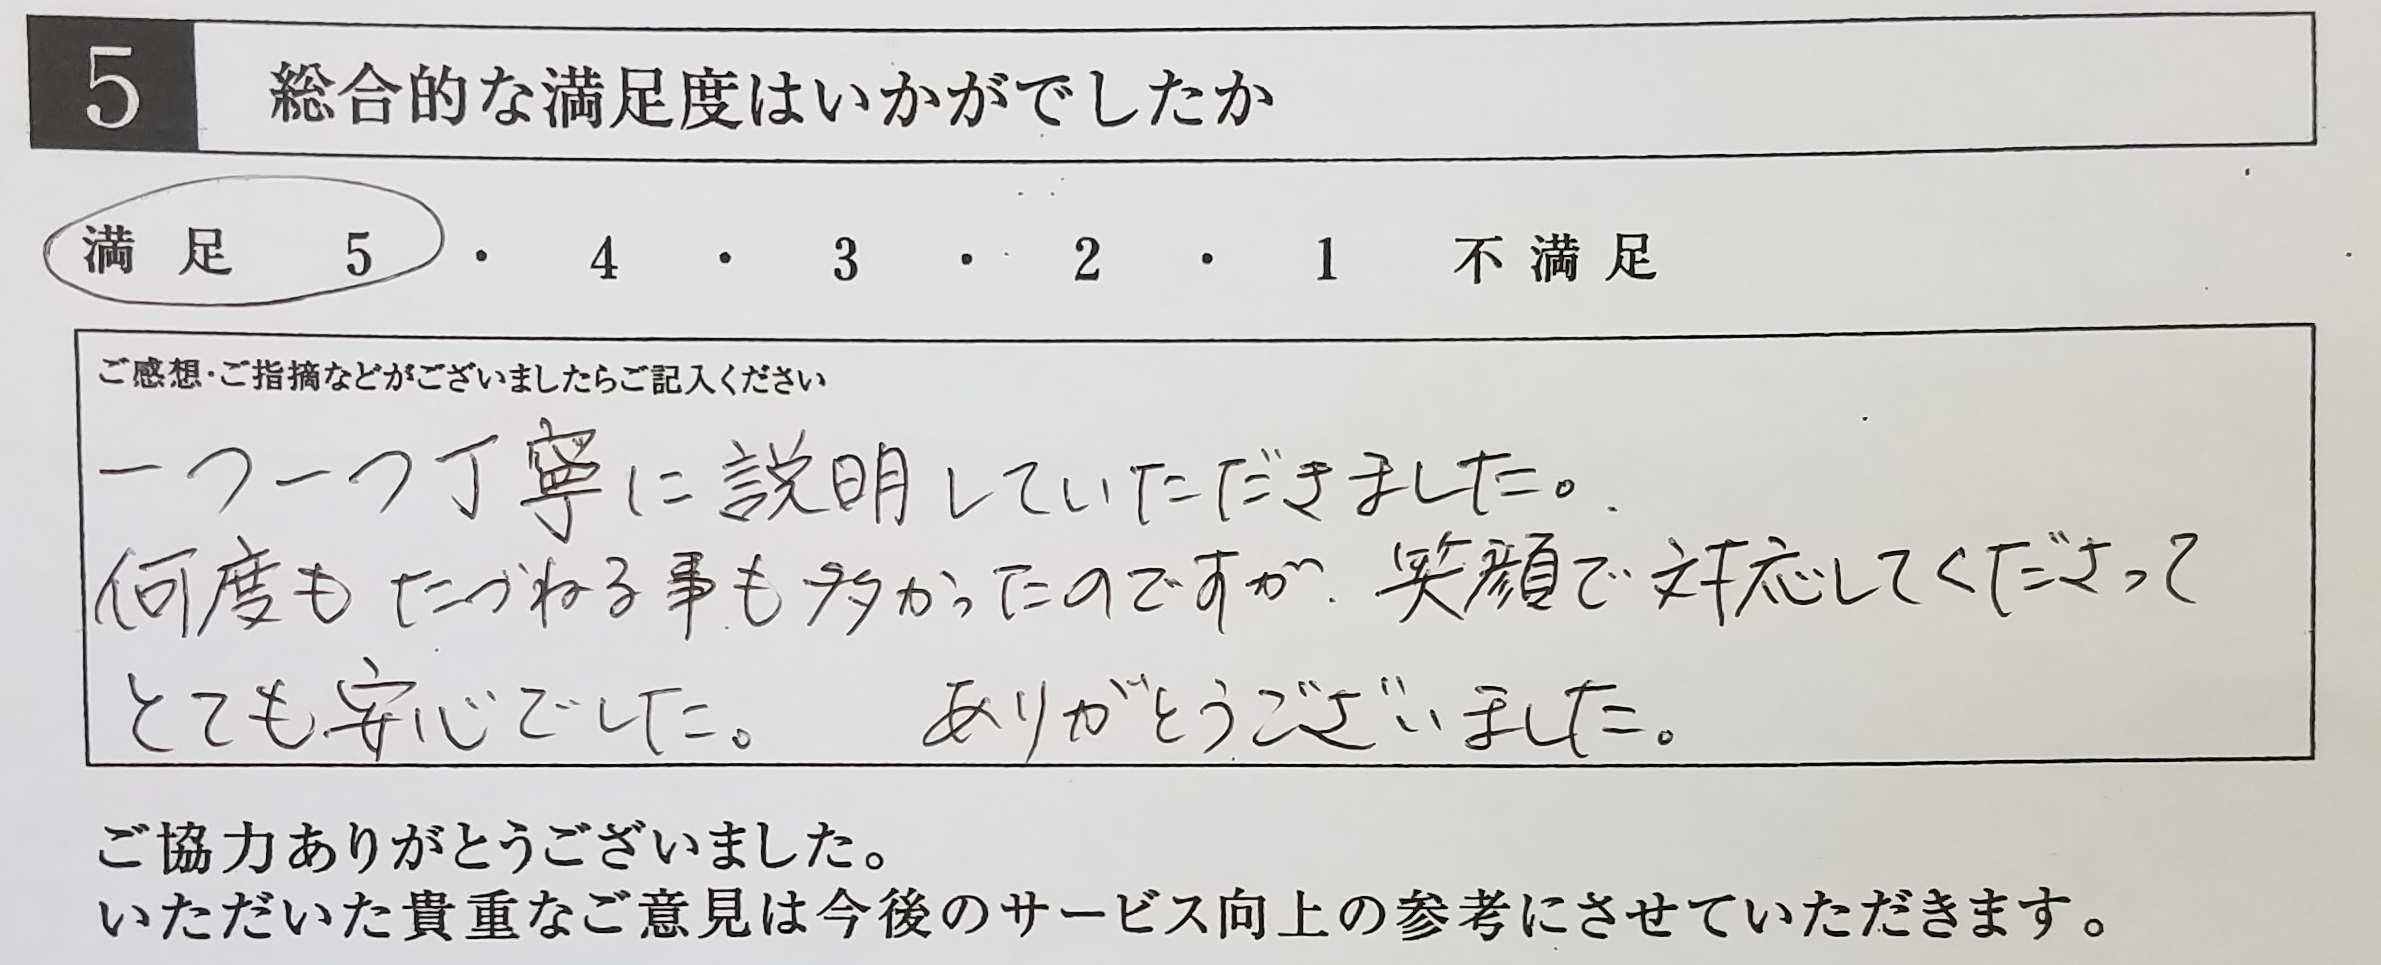 5 総合的な満足度はいかがでしたか
満足 5 ・ 4 ・ 3 ・ 2 ・ 1 不満足
ご感想・ご指摘などがございましたらご記入ください
一つ一つ丁寧に説明していただきました。
何度もたづねる事も多かったのですが、笑顔で対応してくださって
とても安心でした。 ありがとうございました。
ご協力ありがとうございました。
いただいた貴重なご意見は今後のサービス向上の参考にさせていただきます。